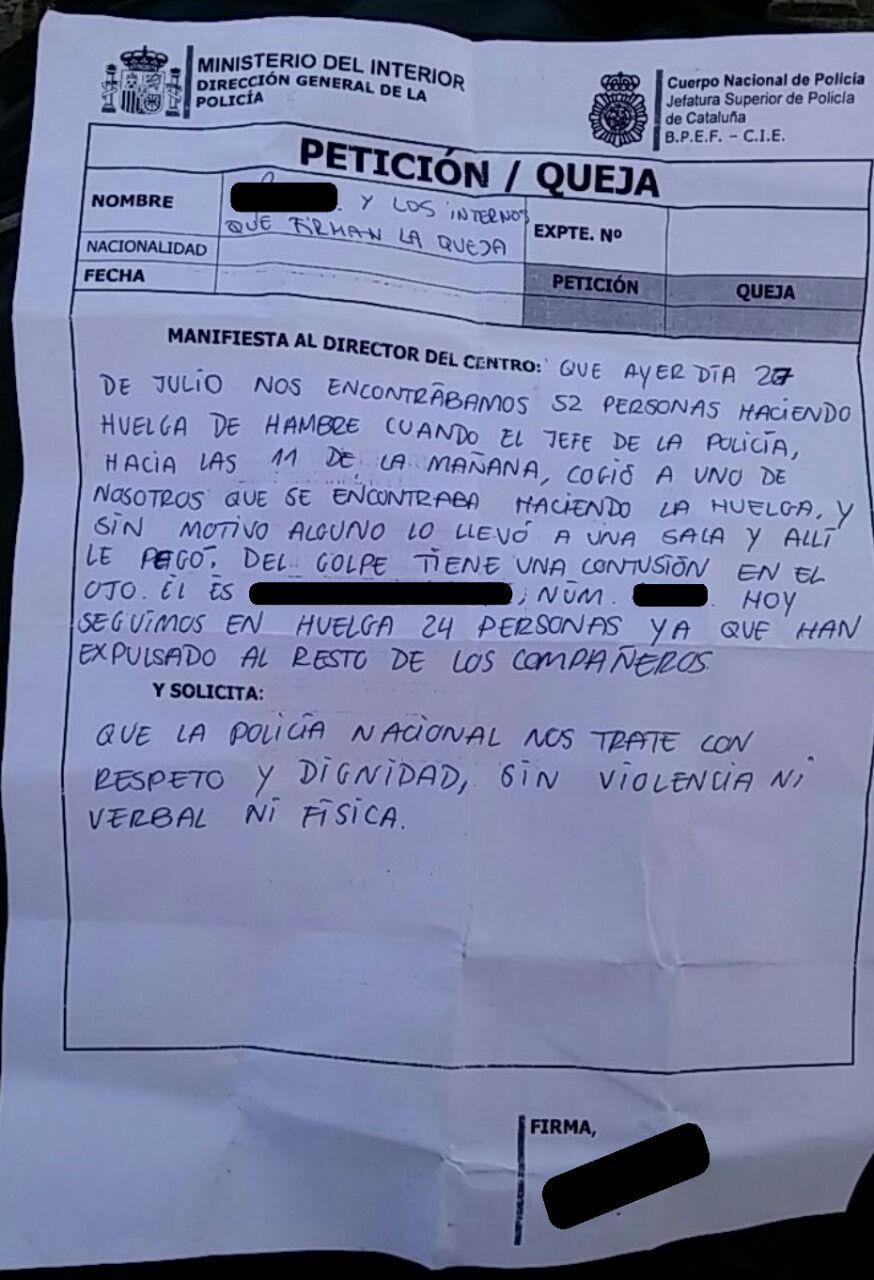 MINISTERIO DEL INTERIOR
DIRECCIÓN GENERAL DE LA
POLICÍA
Cuerpo Nacional de Policía
Jefatura Superior de Policía
de Cataluña
B.P.E.F. – C.I.E.
PETICIÓN / QUEJA
NOMBRE
. Y LOS INTERNOS
QUE FIRMAN LA QUEJA
NACIONALIDAD
FECHA
EXPTE. Nº
PETICIÓN
QUEJA
MANIFIESTA AL DIRECTOR DEL CENTRO: QUE AYER DÍA 27
DE JULIO NOS ENCONTRÁBAMOS 52 PERSONAS HACIENDO
HUELGA DE HAMBRE CUANDO EL JEFE DE LA POLICÍA,
HACIA LAS 11 DE LA MAÑANA, COGIÓ A UNO DE
NOSOTROS QUE SE ENCONTRABA HACIENDO LA HUELGA, Y
SIN MOTIVO ALGUNO LO LLEVÓ A UNA SALA Y ALLÍ
LE PEGÓ. DEL GOLPE TIENE UNA CONTUSIÓN EN EL
OJO. ÉL ES ; NÚM. . HOY
SEGUIMOS EN HUELGA 24 PERSONAS YA QUE HAN
EXPULSADO AL RESTO DE LOS COMPAÑEROS
Y SOLICITA:
QUE LA POLICÍA NACIONAL NOS TRATE CON
RESPETO Y DIGNIDAD, SIN VIOLENCIA NI
VERBAL NI FÍSICA.
FIRMA,